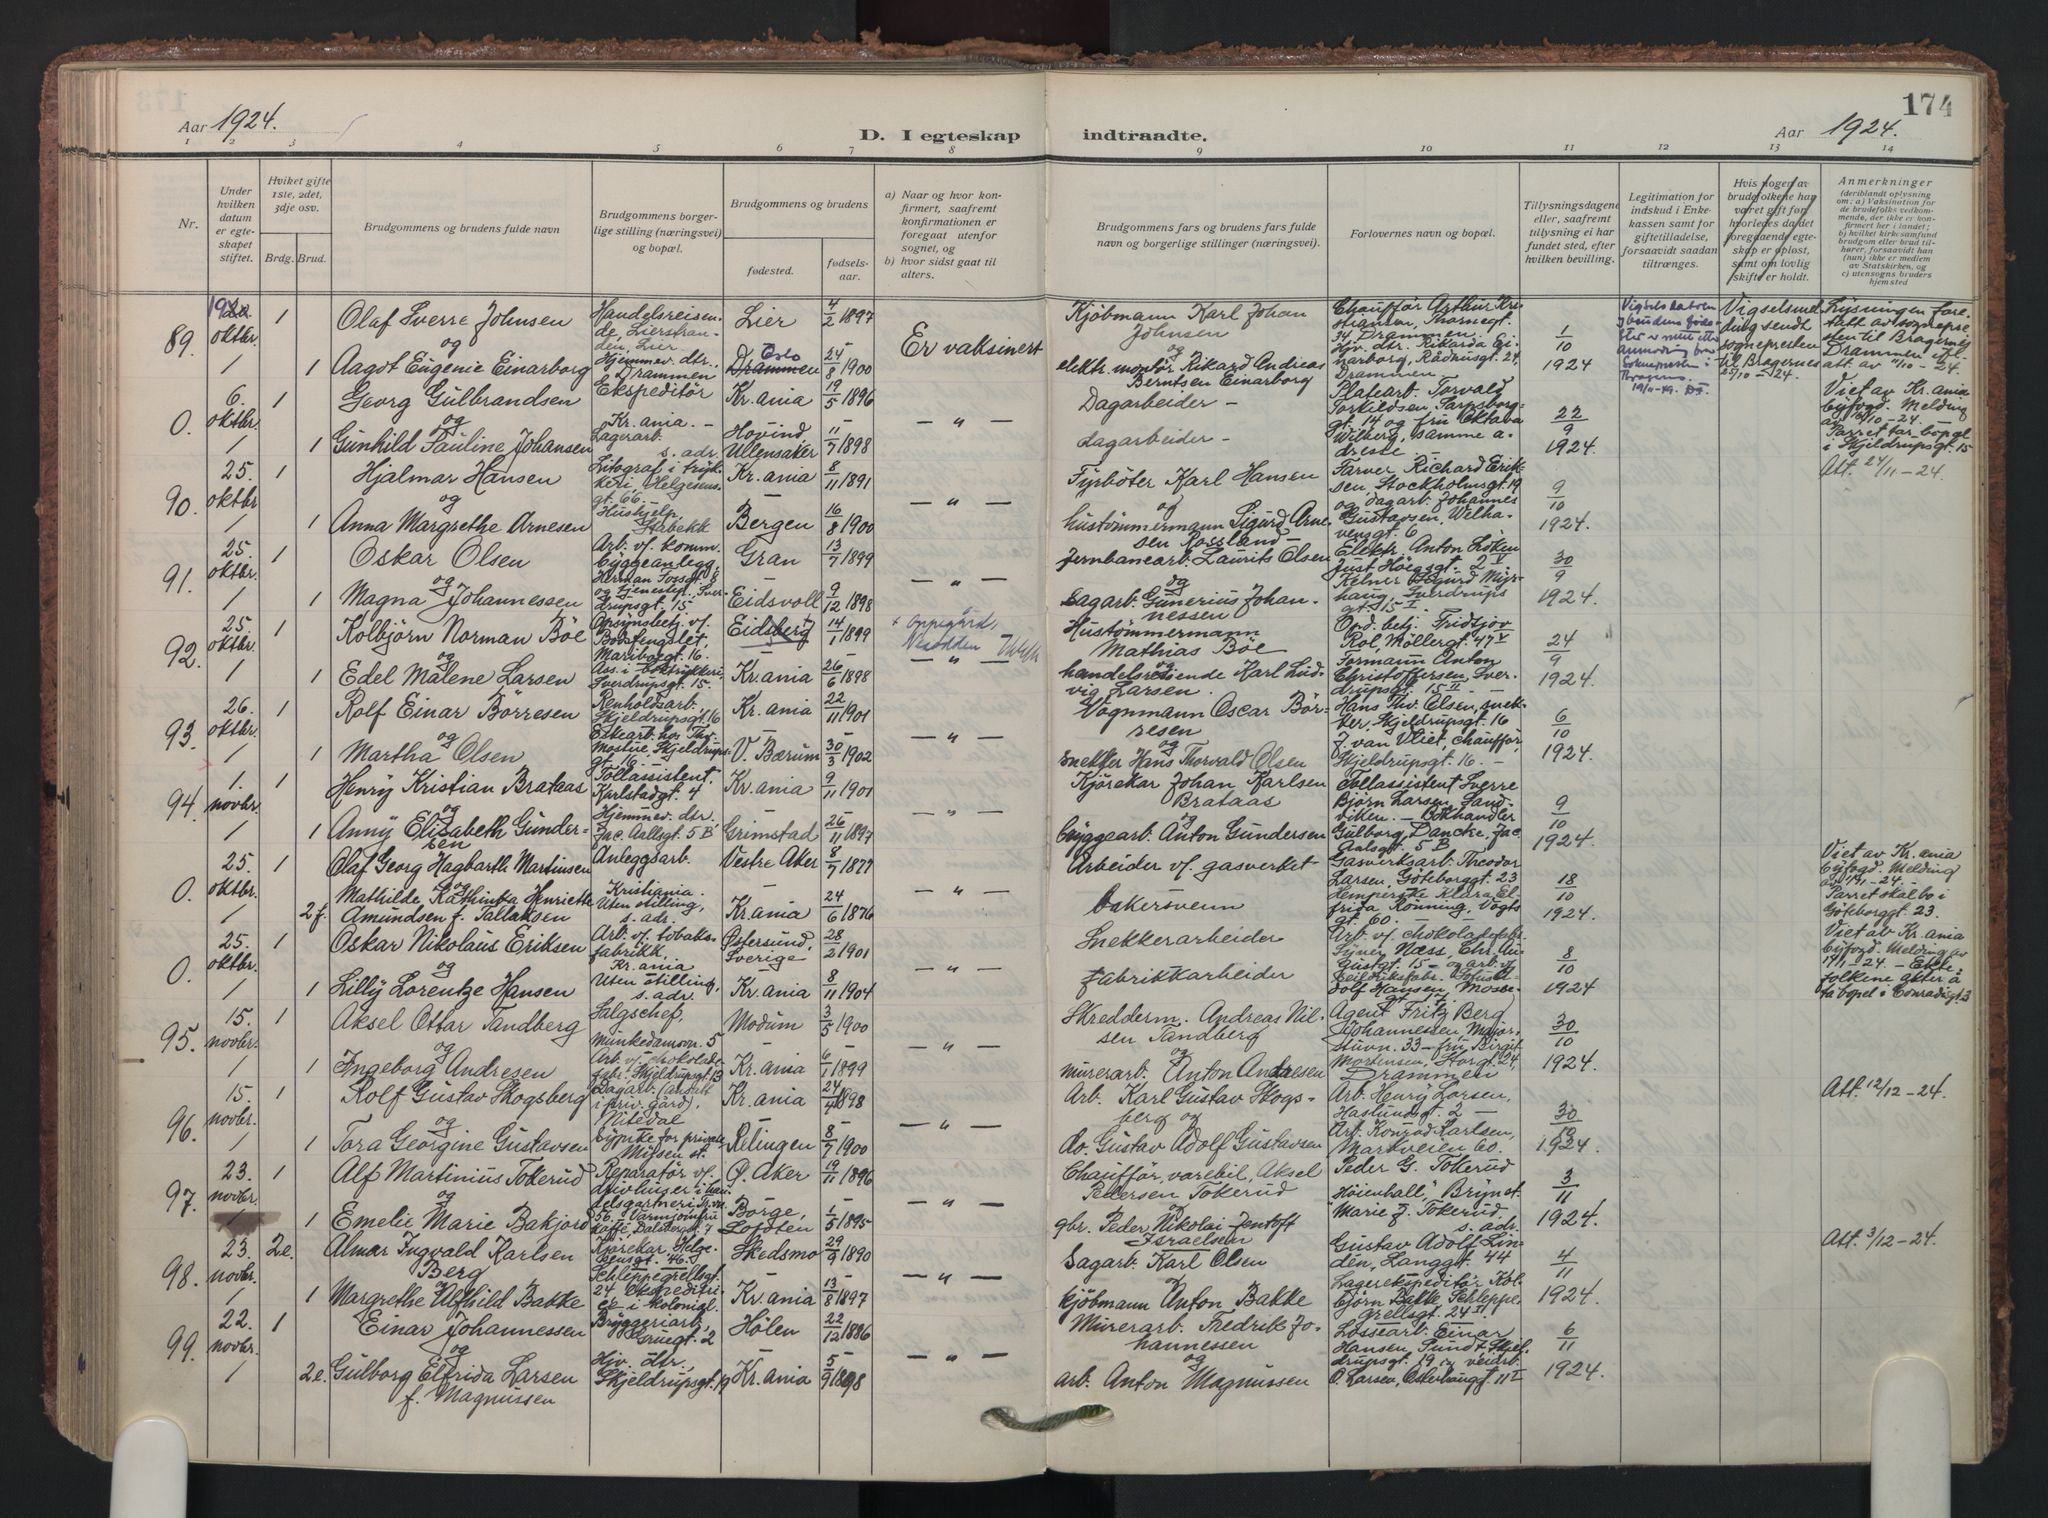 174
Aar 1924.
D. I egteskap indtraadte.
Aar 1924.
1 2 3 4 5 6 7 8 9 10 11 12 13 14
Nr.
Under hvilken datum er egteskapet stiftet.
Hviket gifte 1ste, 2det, 3dje osv.
Brdg. Brud.
Brudgommens og brudens fulde navn
Brudgommens borgerlige stilling (næringsvei) og bopæl.
Brudgommens og brudens
fødested.
fødselsaar.
a) Naar og hvor konfirmert, saafremt konfirmationen er foregaat utenfor sognet, og
b) hvor sidst gaat til alters.
Brudgommens fars og brudens fars fulde navn og borgerlige stillinger (næringsvei).
Forlovernes navn og bopæl.
Tillysningsdagene eller, saafremt tillysning ei har fundet sted, efter hvilken bevilling.
Legitimation for indskud i Enkekassen samt for giftetilladelse, forsaavidt saadan tiltrænges.
Hvis nogen av brudefolkene har været gift før hvorledes da det foregaaende egteskap er opløst, samt om lovlig skifte er holdt.
Anmerkninger
(deriblandt oplysning om: a) Vaksination for de brudefolks vedkommende, der ikke er konfirmert her i landet; b) hvilket kirkesamfund brudgom eller brud tilhører, forsaavidt han (hun) ikke er medlem av Statskirken, og c) utensogns bruders hjemsted
89. oktbr. 1 Olaf Sverre Johnsen Handelsreisende, Lierstranden, Lier Lier 4/2 1897 Er vaksinert Kjöbmann Karl Johan Johnsen 1/10 1924
og
1 Aagot Eugenie Einarborg Hjemmev. dtr., Drammen Drammen Oslo 24/8 1900 elektr. montör Rikard Andreas Berntsen Einarborg
Chaufför Arthur Kristiansen, Tromegt. 34, Drammen
Hjv. dtr. Rikarda Einarborg, Rådhusgt. 24, Drammen
Vigselsmeldung sendt sognepresten til Bragernes 25/10 - 24.
Lysningen foretatt av sognepresten til Bragernes, Drammen ifl. att. av 11/10 - 24.
0. 6. oktbr. 1 Georg Gulbrandsen Ekspeditör Kr.ania. - Kr.ania 19/5 1896 — " — Dagarbeider - 22/9 1924
og
1 Gunhild Pauline Johansen Lagerarb. s. adr. Hovind, Ullensaker 11/7 1898 dagarbeider -
Platearb. Torvald Torkildsen, Sarpsborggt. 14 og fru Oktava Wilberg, samme adresse -
Viet av Kr.ania byfogd. Melding av 18/10 - 24. Parret tar bopæl i Hjeldrupsgt. 15
90. 25. oktbr. 1 Hjalmar Hansen Litograf i trykkeri, Helgesensgt. 66. - Kr.ania 8/11 1891 — " — Fyrböter Karl Hansen 9/10 1924.
og
1 Anna Margrethe Arnesen Hushjelp, Stabekk Bergen 16/8 1900 hustömmermann Sigurd Arnesen Rossland -
Farver Richard Eriksen, Stockholmsgt. 19 og dagarb. Johannes Gustavsen, Welhavensgt. 6
Att. 24/11 - 24.
91. 25. oktbr. 1 Oskar Olsen Arb. v/. komm. byggeanlegg, Herman Fossgt. 8 Gran 13/7 1899 — " — Jernbanearb. Laurits Olsen 30/9 1924.
og
1 Magna Johannessen og tjenestep., Sverdrupsgt. 15 Eidsvoll 9/12 1898 Sagarb. Gunerius Johannessen
Elektr. Anton Löken Just Höegsgt. 2 V
Kelner Sigurd Myrhaug, Sverdrupsgt. 15 I
92. 25. oktbr. 1 Kolbjörn Norman Böe Opsynsbetj. v/. Botsfengslet, Mariboegt. 16. Eidsberg 14/1 1899 + Oppegård, Nesodden — " — Hustömmermann Mathias Böe 24/9 1924.
og
1 Edel Malene Larsen Sverdrupsgt. 15. Kr.ania 26/6 1898 handelsreisende Karl Ludvig Larsen.
Ord. betj. Fridtjov Rol, Möllergt. 47 V
Formann Anton Christoffersen, Sverdrupsgt. 15 II
93. 26. oktbr. 1 Rolf Einar Börresen Renholdsarb., Skjeldrupsgt. 16 Kr.ania 22/11 1901 — " — Vognmann Oscar Börresen 6/10 1924.
og
1 Martha Olsen Eskearb. hos Thv. Mostue, Skjeldrupsgt. 16 - V. Bærum 30/3 1902 snekker Hans Thorvald Olsen
Hans Thv. Olsen, snekker, Skjeldrupsgt. 16
J. van Vliet, chaufför, Skjeldrupsgt. 16. -
94. 1. novbr. 1 Henry Kristian Brataas Tollassistent, Karlstadgt. 4 Kr.ania 9/11 1901 — " — Kjörekar Johan Karlsen Brataas 9/10 1924.
og
1 Anny Elisabeth Gundersen Hjemmev. dtr., Jac. Aallsgt. 5 B Grimstad 26/11 1897 byggearb. Anton Gundersen
Tollassistent Sverre Björn Larsen, Sandviken. - Bokhandler Gulborg Dancke, Jac. Aalsgt. 5 B
0. 25. oktbr. 1 Olaf Georg Hagbarth Martinsen Anleggsarb. Kristiania. Vestre Aker 8/7 1877 — " — Arbeider v/. gasverket 18/10 1924.
og
2 f. Mathilde Kathinka Henriette Amundsen f. Tallaksen Uten stilling, s. adr. Kr.ania 24/6 1876 bakersvenn
Gasverksarb. Theodor Larsen, Göteborggt. 23
Klara Elfrida Rönning, Vogtsgt. 60.
Viet av Kr.ania byfogd. Melding av 17/11 - 24. - Parret skal bo i Göteborggt. 23.
0. 25. oktbr. 1 Oskar Nikolaus Eriksen Arb. v/. tobaksfabrikk, Kr.ania Östersund, Sverige 28/2 1901 — " — Snekkerarbeider 8/10 1924
og
1 Lilly Lorentze Hansen Uten stilling, s. adr. Kr.ania 8/11 1904 fabrikkarbeider
Viet av Kr.ania byfogd. Melding av 17/11 - 24. - Ektefolkene akter å ta bopel i Conradisgt. 3
95. 15. novbr. 1 Aksel Ottar Tandberg Salgschef, Munkedamsvn. 5 Modum 3/5 1900 — " — Skredderm. Andreas Nilsen Tandberg 30/10 1924.
og
1 Ingeborg Andresen Arb. v/. chokoladefabr., Skjeldrupsgt. 13 Kr.ania 6/1 1899 murerarb. Anton Andresen
Agent Fritz Berg Johannessen, Majorstuvn. 33 - fru Birgit Mortensen, Storgt. 24, Drammen
96. 15. novbr. 1 Rolf Gustav Skogsberg Dagarb. (ansatt i priv. gård), Nitedal Kr.ania 24/4 1898 — " — Arb. Karl Gustav Skogsberg og 30/10 1924.
og
1 Tora Georgine Gustavsen Sypike for private Relingen 8/7 1900 do. Gustav Adolf Gustavsen
Arb. Henry Larsen, Haslundsgt. 2 -
Arb. Konrad Karlsen, Markveien 60.
Att. 12/12 - 24.
97. 23. novbr. 1 Alf Martinius Tokerud Reparatör v/. drivhuser i handelsgartneri Ö. Aker 19/11 1896 — " — Chaufför, varebil, Aksel Pedersen Tokerud 3/11 1924.
og
1 Emelie Marie Bakjord Börge, Lofoten 1/5 1895 gbr. Peder Nikolai Jentoft Israelsen
Peder G. Tokerud "Höienhall," Bryn st.
Marie J. Tokerud s. adr.
98. 23. novbr. 2 e. Almar Ingvald Karlsen Berg Kjörekar, Helgesensgt. 46. Skedsmo 29/9 1890 — " — Sagarb. Karl Olsen 4/11 1924.
og
1 Margrethe Alfhild Bakke Schleppegrellsgt. 24 Ekspeditrise i kolonial. Kr.ania 13/8 1897 kjöbmann Anton Bakke
Gustav Adolf Linden, Langgt. 44
Lagerekspeditör Kolbjörn Bakke Schleppegrellsgt. 24 II
Att. 3/12 - 24.
99. 22. novbr. 1 Einar Johannessen Bryggeriarb., Gruegt. 2 Hölen 22/12 1886 — " — Murerarb. Fredrik Johannessen 6/11 1924.
og
2 e. Gulborg Elfrida Larsen f. Magnussen Hjv. dtr., Skjeldrupsgt. 19 Kr.ania 5/9 1898 arb. Anton Magnussen
Lossearb. Einar Hansen, Sundt Skjeldrupsgt. 19 - veiarb. O. Larsen, Österhausgt. 11 I